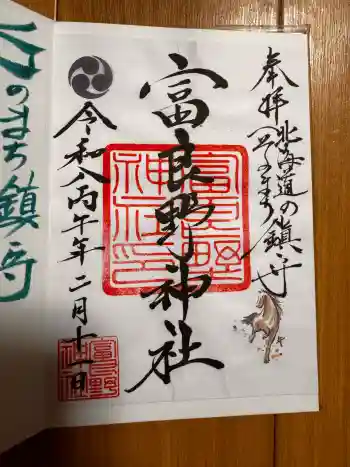 奉拝
北海道の鎮守
へそのまち
富良野神社
富良野神社印
令和八丙午年二月十一日
富良野神社
のまち鎮守